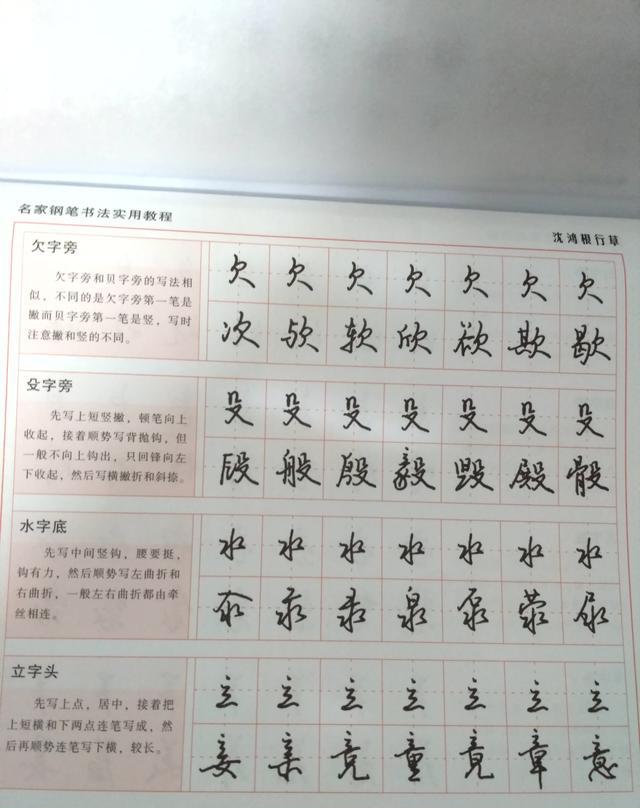 名家钢笔书法实用教程
沈鸿根行草
欠字旁
欠字旁和贝字旁的写法相
似，不同的是欠字旁第一笔是
撇而贝字旁第一笔是竖，写时
注意撇和竖的不同。
欠 欠 欠 欠 欠 欠 欠
次 欤 软 欣 欲 欺 歇
殳字旁
先写上短竖撇，顿笔向上
收起，接着顺势写背抛钩，但
一般不向上钩出，只回锋向左
下收起，然后写横撇折和斜捺。
殳 殳 殳 殳 殳 殳 殳
段 般 殷 毅 毁 殿 骰
水字底
先写中间竖钩，腰要挺，
钩有力，然后顺势写左曲折和
右曲折，一般左右曲折都由牵
丝相连。
水 水 水 水 水 水 水
泉 泵 荥 尿
立字头
先写上点，居中，接着把
上短横和下两点连笔写成，然
后再顺势连笔写下横，较长。
立 立 立 立 立 立 立
妾 亲 竞 童 竟 章 意